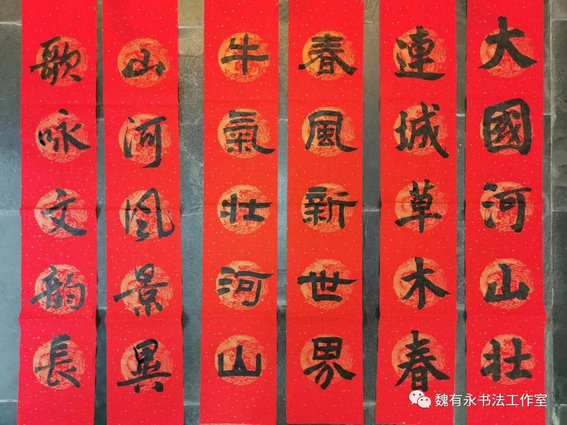 大國河山壯
連城草木春
春風新世界
牛氣壯河山
山河風景異
歌咏文韵長
魏有永书法工作室